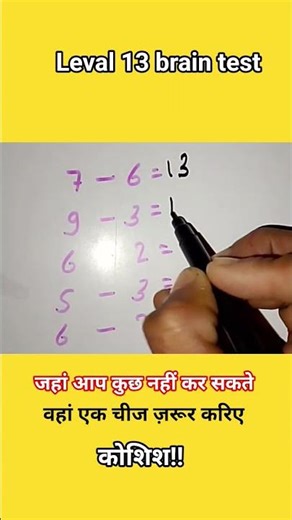 Leval 13 brain test
7 - 6 = 13
9 - 3 = 1
6 2 =
5 - 3 =
6 -
जहां आप कुछ नहीं कर सकते
वहां एक चीज ज़रूर करिए
कोशिश!!